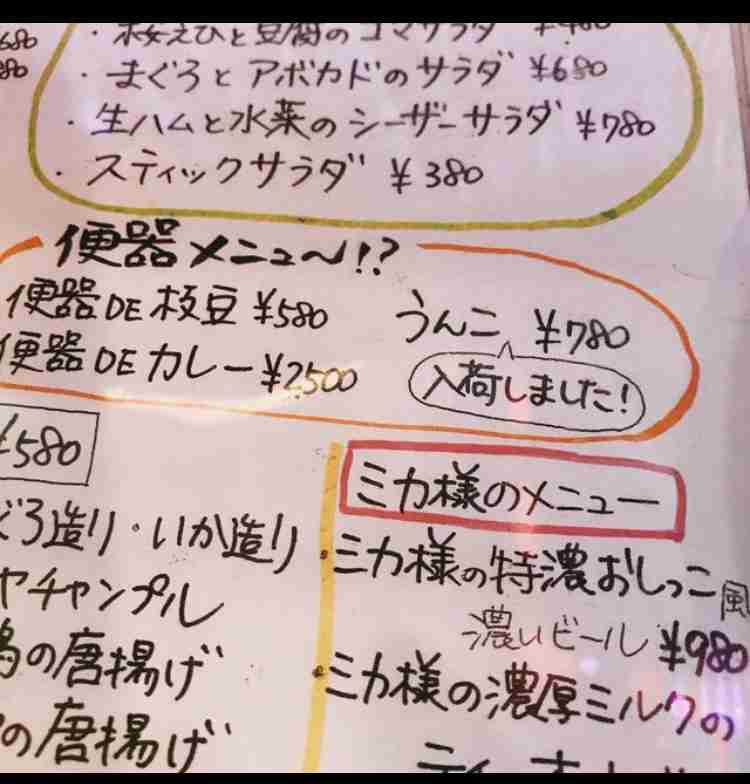 680
・桜えびと豆腐のゴマサラダ ¥480
80
・まぐろとアボカドのサラダ ¥680
・生ハムと水菜のシーザーサラダ ¥780
・スティックサラダ ¥380
便器メニュ〜!?
便器DE枝豆 ¥580
便器DEカレー ¥2,500
うんこ ¥780
入荷しました!
¥580
ぐろ造り・いか造り
ヤチャンプル
の唐揚げ
の唐揚げ
ミカ様のメニュー
・ミカ様の特濃おしっこ風
濃いビール ¥980
・ミカ様の濃厚ミルクの